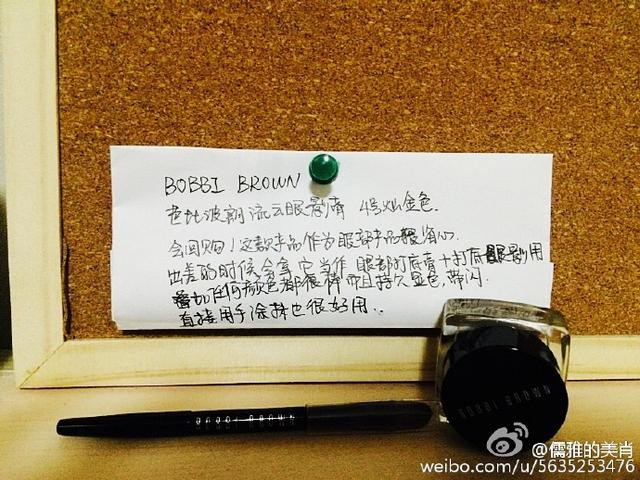 BOBBI BROWN
芭比波朗流云眼影膏 4号灿金色.
会回购！这款产品作为眼部产品很省心.
出差的时候会拿它当作眼部打底膏+打底眼影用
叠加任何颜色都很棒而且持久显色,带闪.
直接用手涂抹也很好用..
BOBBI BROWN
BOBBI BROWN
@儒雅的美肖
weibo.com/u/5635253476